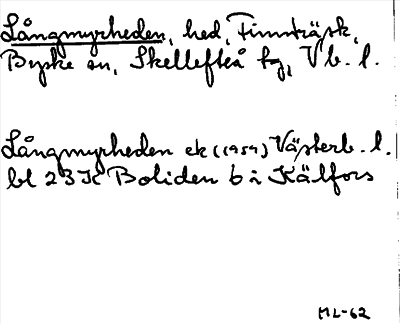 Långmyrheden, hed, Finnträsk,
Byske sn, Skellefteå tg, Vb. l.
Långmyrheden ek (1959) Västerb. l.
bl 23 K Boliden 6 i Kälfors
ML-62